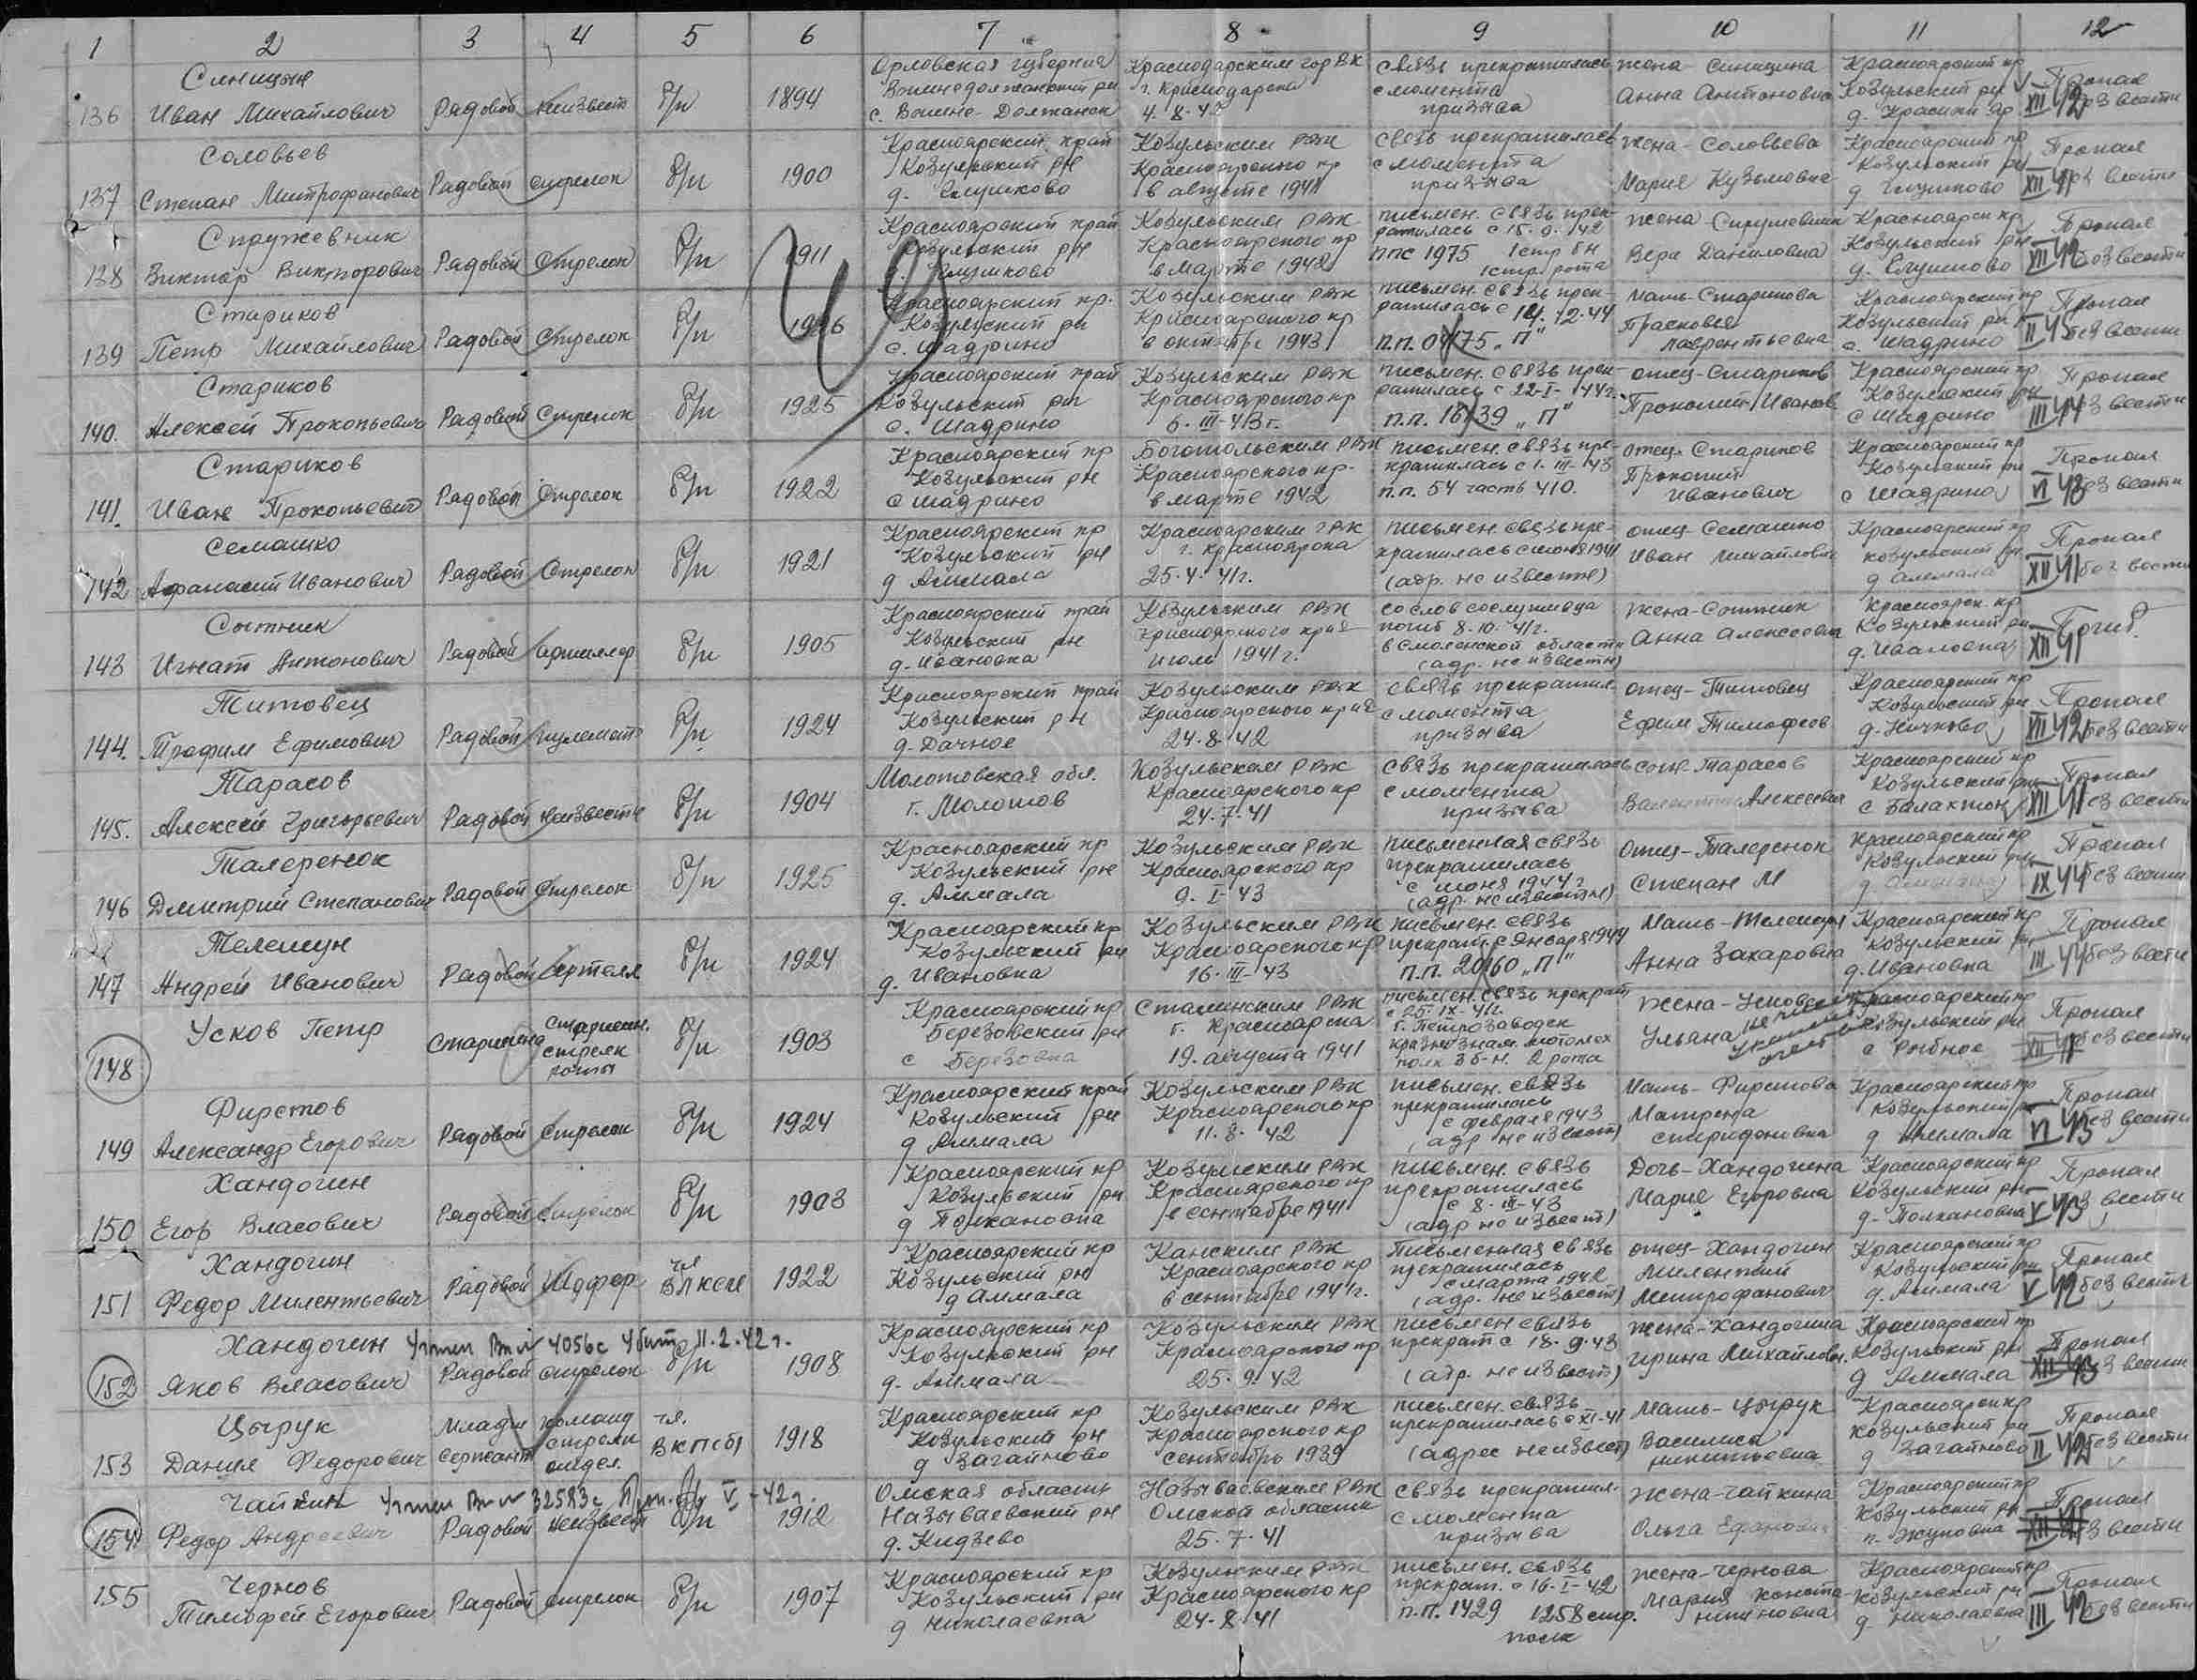 1 2 3 4 5 6 7 8 9 10 11 12
136 Синицын Иван Михайлович Рядовой неизвестн б/п 1894 Орловская губерния с. Воине Должанск Краснодарским гор ВК г. Краснодара 4.8.42 связь прекратилась с момента призыва жена Синицина Анна Антоновна Красноярский кр Козульский рн д. Красный Яр Пропал без вести XII 42
137 Соловьев Степан Митрофанович Рядовой стрелок б/п 1900 Красноярский край Козульский рн д. Глушково Козульским РВК Красноярского кр в августе 1941 связь прекратилась с момента призыва жена-Соловьева Мария Кузьмовна Красноярский кр Козульский рн д Глушково Пропал без вести XII 41
138 Спружевник Виктор Викторович Рядовой Стрелок б/п 1911 Красноярский край Козульский рн д. Глушково Козульским РВК Красноярского кр в марте 1942 письмен. связь прекратилась с 15.9.42 ппс 1975 1 стр бн 1 стр. рота жена Вера Даниловна Красноярск кр Козульский рн д. Глушково Пропал без вести XII 42
139 Стариков Петр Михайлович Рядовой Стрелок б/п 1926 Красноярский кр. Козульский рн с. Шадрино Козульским РВК Красноярского кр в октябре 1943 письмен. связь прекратилась с 14.12.44 п.п. 04175 „П" мать-Старикова Прасковья Лаврентьевна Красноярский кр Козульский рн с. Шадрино Пропал без вести II 45
140. Стариков Алексей Прокопьевич Рядовой Стрелок б/п 1925 Красноярский край Козульский рн с. Шадрино Козульским РВК Красноярского кр 6-III-43 г. письмен. связь прекратилась с 22-I-44 г. п.п. 18739 „П" отец-Стариков Прокопий Иванов Красноярский кр Козульский рн с Шадрино Пропал без вести III 44
141. Стариков Иван Прокопьевич Рядовой Стрелок б/п 1922 Красноярский кр Козульский рн с Шадрино Боготольским РВК Красноярского кр. в марте 1942 письмен. связь прекратилась с 1-III-43 п.п. 54 часть 410. отец-Стариков Прокопий Иванович Красноярский кр Козульский рн с Шадрино Пропал без вести VI 43
142 Семашко Афанасий Иванович Рядовой Стрелок б/п 1921 Красноярский кр Козульский рн д Алимала Красноярским ГВК г. Красноярска 25.4.41г. письмен. связь прекратилась с июня 1941 (адр. не известн) отец Семашко Иван Михайлович Красноярский кр Козульский рн д Алимала Пропал без вести XII 41
143 Сотник Игнат Антонович Рядовой артиллер б/п 1905 Красноярский край Козульский рн д. Ивановка Козульским РВК Красноярского края июль 1941 г. со слов сослуживца погиб 8.10.41г. в Смоленской области (адр. не известн) жена-Сотник Анна Алексеевна Красноярск. кр Козульский рн д. Ивановка Погиб. XII 41
144. Титовец Трофим Ефимович Рядовой пулеметч б/п 1924 Красноярский край Козульский рн д. Дачное Козульским РВК Красноярского края 24.8.42 связь прекратил. с момента призыва отец-Титовец Ефим Тимофеев Красноярский кр Козульский рн Пропал без вести XII 42
145. Тарасов Алексей Григорьевич Рядовой неизвестн б/п 1904 Молотовская обл. г. Молотов Козульским РВК Красноярского кр 24.7.41 связь прекратилась с момента призыва сын-Тарасов Алексеевич Красноярский кр Козульский рн с Балахтон Пропал без вести XII 41
146 Талеренок Дмитрий Степанович Рядовой Стрелок б/п 1925 Красноярский кр Козульский рн д. Алимала Козульским РВК Красноярского кр 9-I-43 письменная связь прекратилась с июня 1944 г (адр. не известн) отец-Талеренок Степан М Красноярский кр Козульский рн Пропал без вести IX 44
147 Телешун Андрей Иванович Рядовой б/п 1924 Красноярский кр Козульский рн д. Ивановка Козульским РВК Красноярского кр 16-III-43 письмен. связь прекрат. с января 1944 п.п. 20160 „П" мать-Телешун Анна Захаровна Красноярский кр Козульский рн д. Ивановка Пропал без вести III 44
148 Усков Петр Старшина Старшин. стрелк роты б/п 1903 Красноярский кр Березовский рн с Березовка Сталинским РВК г. Красноярска 19. августа 1941 письмен. связь прекрат с 25-IX-41г. г. Петрозаводск краснознам. мотомех полк 3 б-н. 2 рота жена-Ульяна Красноярский кр Козульский рн с Рыбное Пропал без вести XII 41
149 Фирстов Александр Егорович Рядовой Стрелок б/п 1924 Красноярский край Козульский рн д Алимала Козульским РВК Красноярского кр 11.8.42 письмен. связь прекратилась с февраля 1943 (адр не известн) мать-Фирстова Матрена Спиридоновна Красноярский кр Козульский рн д Алимала Пропал без вести VI 43
150 Хандогин Егор Власович Рядовой Стрелок б/п 1903 Красноярский кр Козульский рн д Полкановка Козульским РВК Красноярского кр в сентябре 1941 письмен. связь прекратилась с 8-III-43 (адр не известн) Дочь-Хандогина Мария Егоровна Красноярский кр Козульский рн д-Полкановка Пропал без вести V 43
151 Хандогин Федор Милентьевич Рядовой Шофер чл ВЛКСМ 1922 Красноярский кр Козульский рн д Алимала Канским РВК Красноярского кр в сентябре 1941г. Письменная связь прекратилась с марта 1942 (адр. не известн) отец-Хандогин Милентий Митрофанович Красноярский кр Козульский рн д. Алимала Пропал без вести V 42
152 Хандогин Яков Власович 4056с Убит 11.2.42 г. Рядовой стрелок б/п 1908 Красноярский кр Козульский рн д. Алимала Козульским РВК Красноярского кр 25.9.42 письмен связь прекрат с 18.9.43 (адр. не известн) жена-Хандогина Ирина Михайловн. Красноярский кр Козульский рн д Алимала Пропал без вести XII 43
153 Цырук Данил Федорович Младш Сержант команд стрелк отдел. чл. ВКП(б) 1918 Красноярский кр Козульский рн д Загайново Козульским РВК Красноярского кр сентябрь 1939 письмен. связь прекратилась с XI-41 (адрес неизвест) мать-Цырук Василиса Никитьевна Красноярск кр Козульский рн д Загайново Пропал без вести II 42
154 Чайкин Федор Андреевич 32583с V-42 г. Рядовой неизвестн б/п 1912 Омская область Называевский рн д. Кидзево Называевским РВК Омской области 25.7.41 связь прекратил. с момента призыва жена-Чайкина Ольга Красноярский кр Козульский рн п. Жуковка Пропал без вести XII 41
155 Чернов Тимофей Егорович Рядовой Стрелок б/п 1907 Красноярский кр Козульский рн д Николаевка Козульским РВК Красноярского кр 24.8.41 письмен. связь прекрат. с 16-I-42 п.п. 1429 1258 стр. полк жена-Чернова Мария Красноярский кр Козульский рн д. Николаевка Пропал без вести III 42